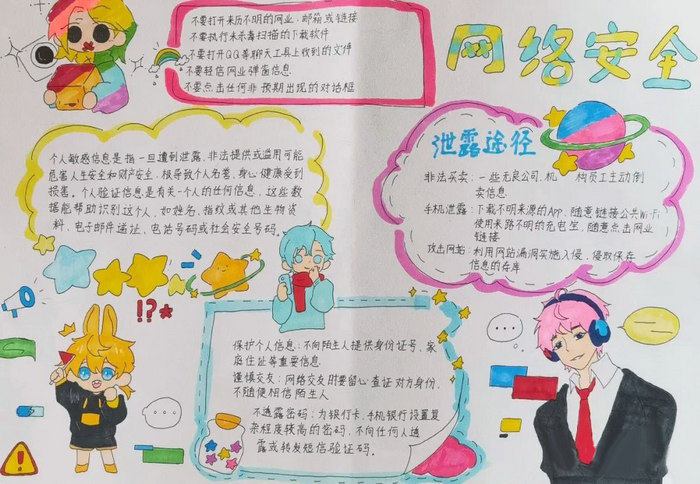 网络安全
不要打开来历不明的网业，邮箱或链接
不要执行未杀毒扫描的下载软件
不要打开QQ等聊天工具上收到的文件
不要轻信网业弹窗信息
不要点击任何非预期出现的对话框
个人敏感信息是指一旦遭到泄露、非法提供或滥用可能
危害人生安全和财产安全，极导致个人名誉，身心健康受到
损害。个人验证信息是有关一个人的任何信息，这些数
据能帮助识别这个人，如姓名、指纹或其他生物资
料、电子邮件递址、电话号码或社会安全号码。
泄露途径
非法买卖：一些无良公司，机构员工主动倒
卖信息
手机泄露：下载不明来源的App，随意链接公共Wi-Fi
使用来路不明的充电坐，随意点击网业
链接
攻击网站：利用网站漏洞实施入侵，窃取保存
信息的存库
!?*
保护个人信息：不向陌生人提供身份证号、家
庭住址等重要信息
谨慎交友：网络交友时要留心查证对方身份，
不随便相信陌生人
不透露密码：为银行卡、手机银行设置复
杂程度较高的密码，不向任何人透
露或转发短信验证码。